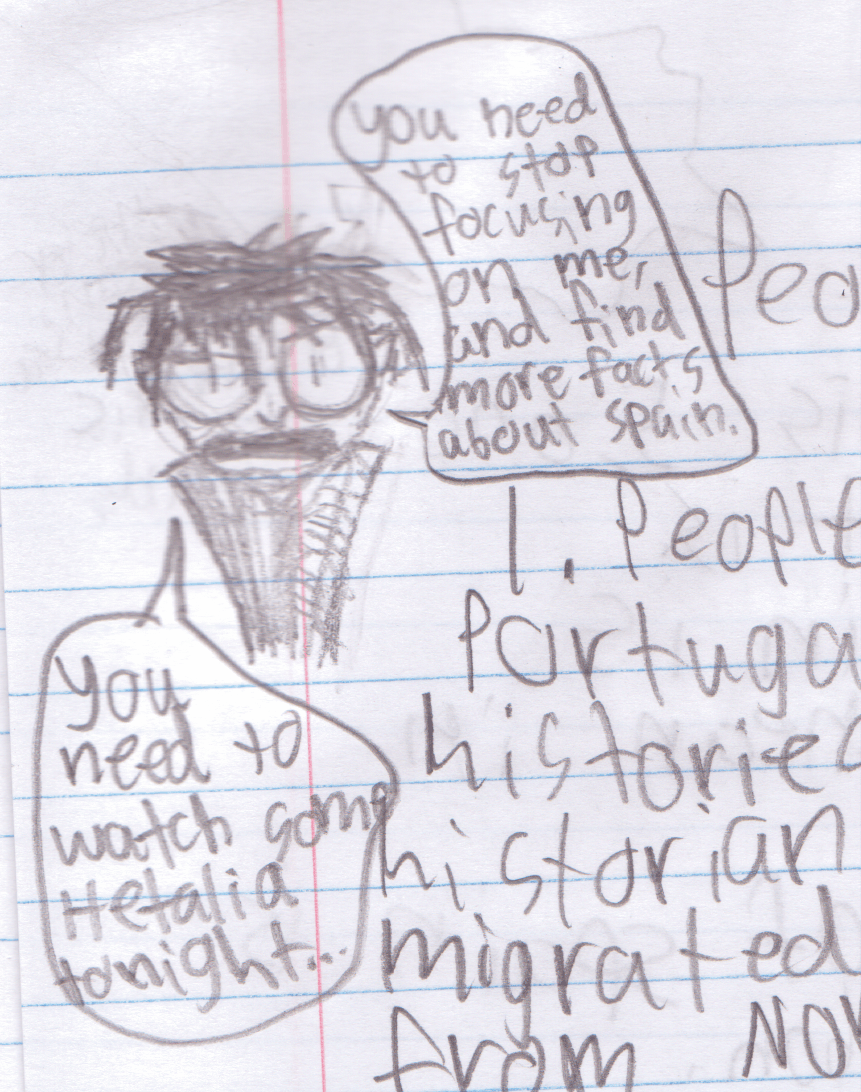 you need
to stop
focusing
on me,
and find
more facts
about spain.
You
need to
watch some
Hetalia
tonight...
Peo
1. People
Portuga
histories
historian
migrated
from. Nov